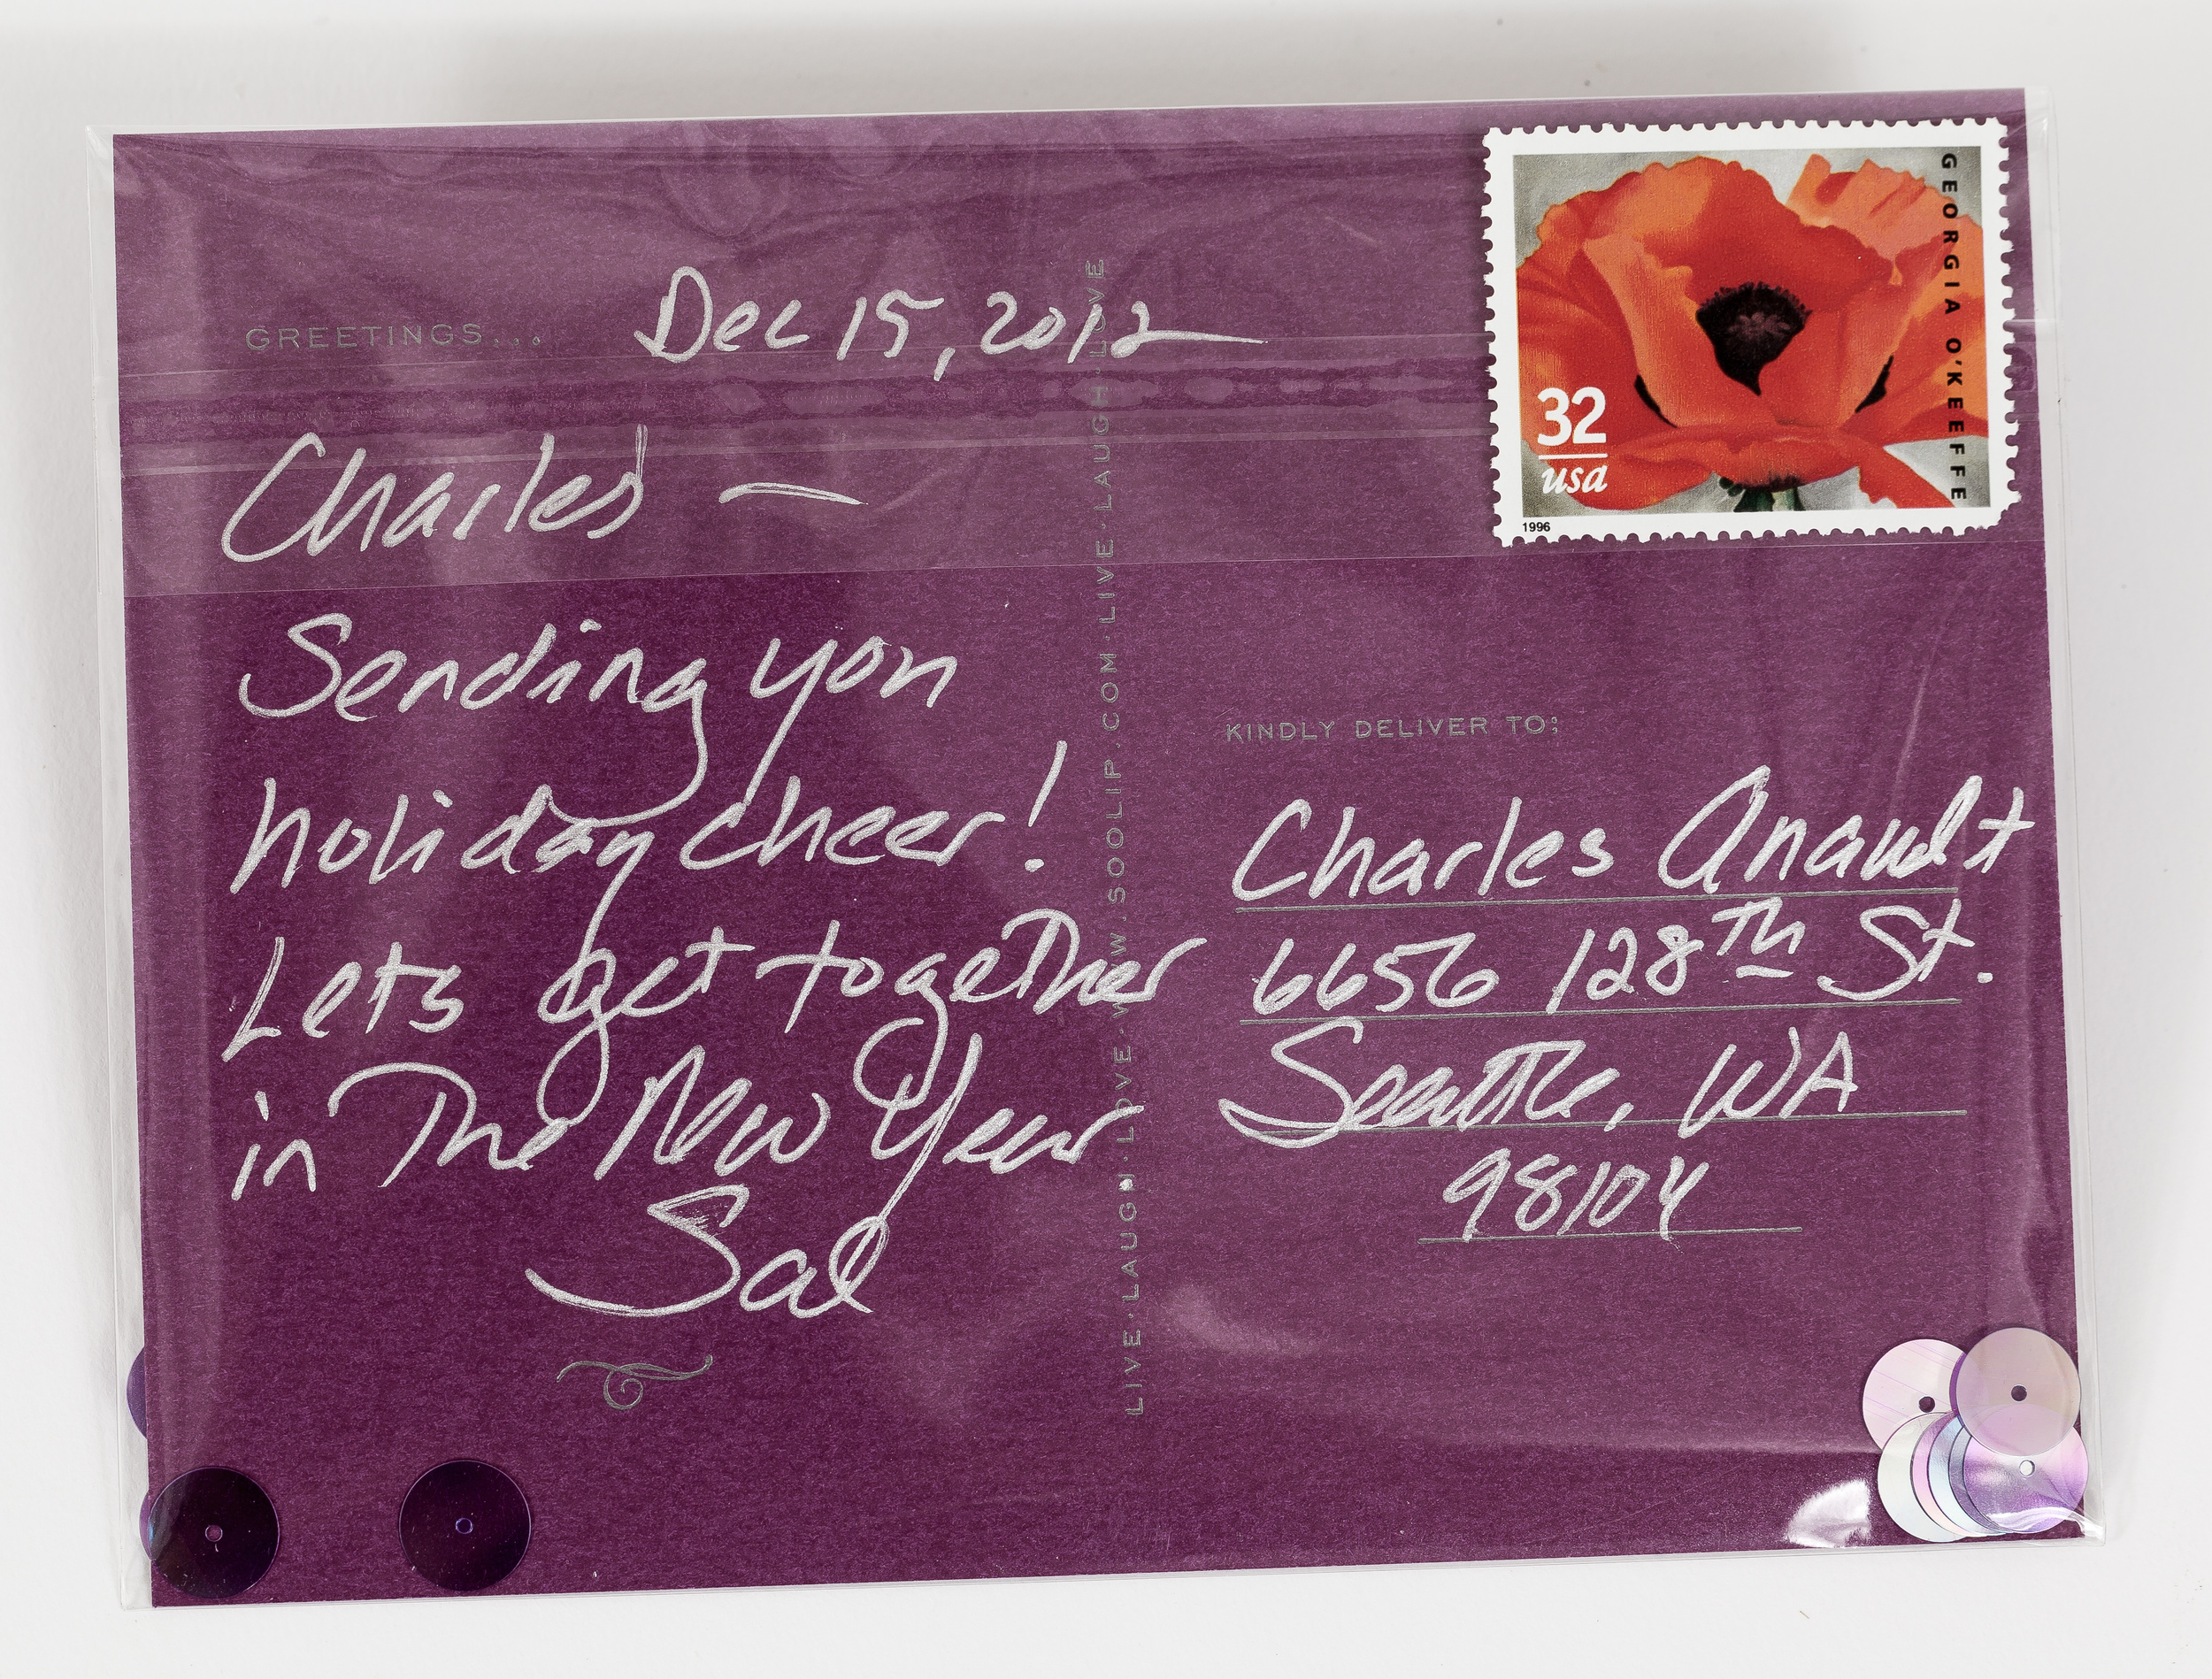 GREETINGS...
Dec 15, 2012
Charles —
Sending you
holiday cheer!
Lets get together
in The New Year
Sal
LIVE·LAUGH·LOVE·WWW.SOOLIP.COM·LIVE·LAUGH·LOVE
GEORGIA O'KEEFFE
32
usa
1996
KINDLY DELIVER TO:
Charles Anault
6656 128Th St.
Seattle, WA
98104